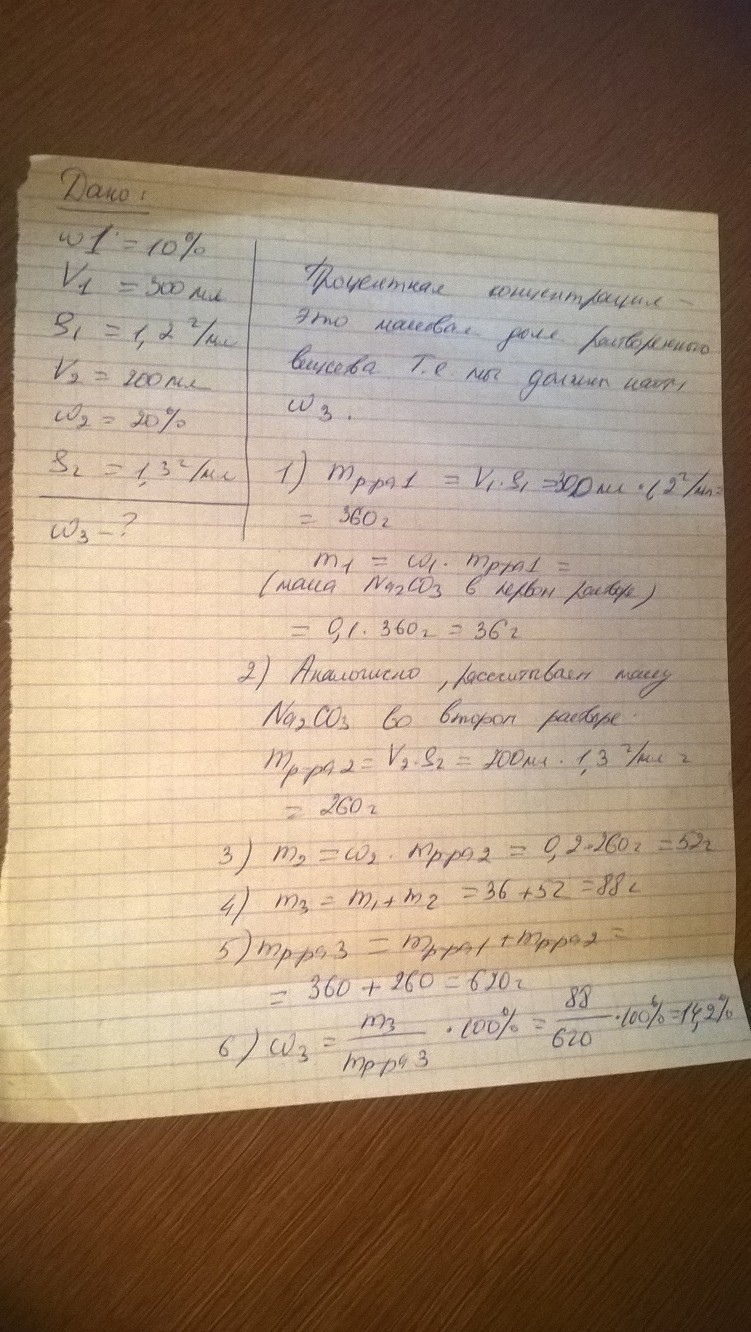 Дано:
ω1 = 10%
V1 = 300 мл
ρ1 = 1,2 г/мл
V2 = 200 мл
ω2 = 20%
ρ2 = 1,3 г/мл
ω3 - ?
Процентная концентрация -
это массовая доля растворенного
вещества Т.е мы должны найти
ω3.
1) mр-ра1 = V1·ρ1 = 300 мл · 1,2 г/мл =
= 360 г
m1 = ω1 · mр-ра1 =
(масса Na2CO3 в первом растворе)
= 0,1 · 360 г = 36 г
2) Аналогично, рассчитываем массу
Na2CO3 во втором растворе.
mр-ра2 = V2·ρ2 = 200 мл · 1,3 г/мл =
= 260 г
3) m2 = ω2 · mр-ра2 = 0,2·260 г = 52 г
4) m3 = m1 + m2 = 36 + 52 = 88 г
5) mр-ра3 = mр-ра1 + mр-ра2 =
= 360 + 260 = 620 г
6) ω3 = m3 / mр-ра3 · 100% = 88 / 620 · 100% = 14,2%